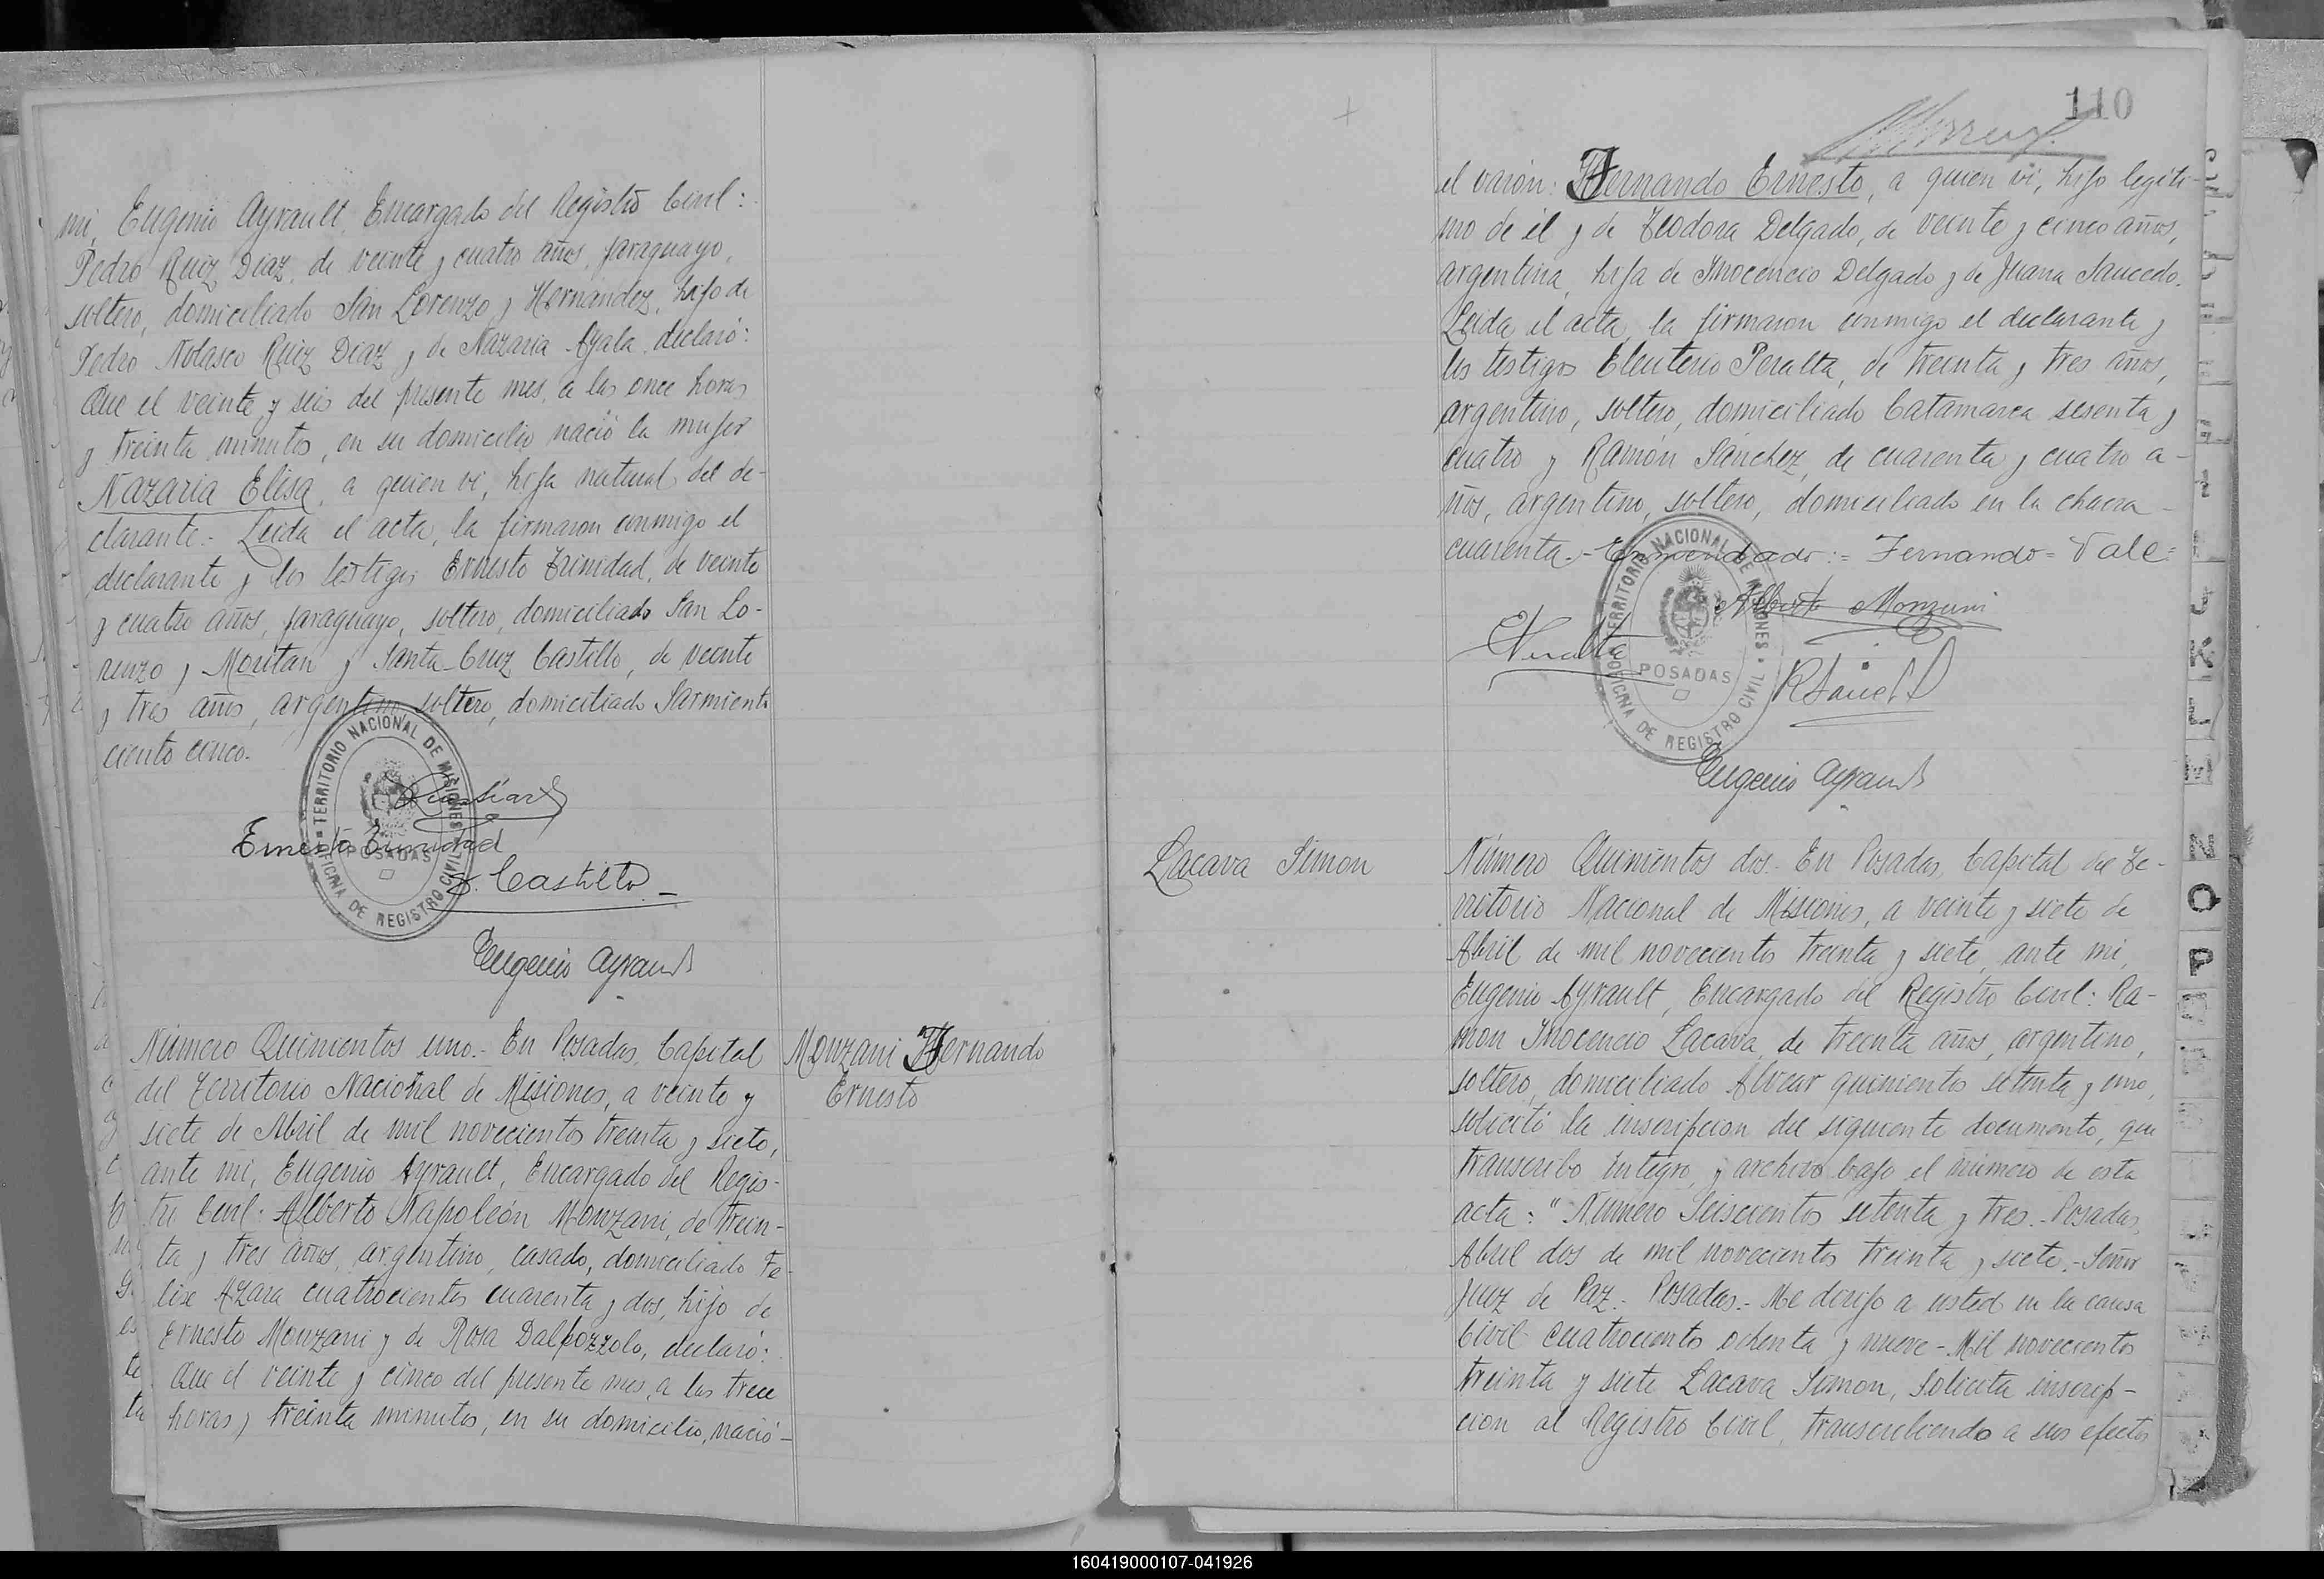 mi, Eugenio Ayrault, Encargado del Registro Civil:
Pedro Ruiz Diaz, de veinte y cuatro años, paraguayo,
soltero, domiciliado San Lorenzo y Hernández, hijo de
Pedro Nolasco Ruiz Diaz y de Nazaria Ayala, declaró:
Que el veinte y seis del presente mes, a las once horas
y treinta minutos, en su domicilio nació la mujer
Nazaria Elisa, a quien vi, hija natural del de-
clarante.- Leida el acta, la firmaron conmigo el
declarante y los testigos Ernesto Trinidad, de veinte
y cuatro años, paraguayo, soltero, domiciliado San Lo-
renzo y Moritan y Santa Cruz Castillo, de veinte
y tres años, argentino, soltero, domiciliado Sarmiento
ciento cinco.
TERRITORIO NACIONAL DE MISIONES
POSADAS
OFICINA DE REGISTRO CIVIL
Ernesto Trinidad
S. Castillo
Eugenio Ayrault
Número Quinientos uno.- En Posadas, Capital
del Territorio Nacional de Misiones, a veinte y
siete de Abril de mil novecientos treinta y siete,
ante mi, Eugenio Ayrault, Encargado del Regis-
tro Civil: Alberto Napoleón Monzani, de trein-
ta y tres años, argentino, casado, domiciliado Fe-
lix Azara cuatrocientos cuarenta y dos, hijo de
Ernesto Monzani y de Rosa Dalpozzolo, declaró:
Que el veinte y cinco del presente mes, a las trece
horas y treinta minutos, en su domicilio, nació-
Monzani Fernando
Ernesto
110
el varón: Fernando Ernesto, a quien vi, hijo legíti-
mo de él y de Teodora Delgado, de veinte y cinco años,
argentina, hija de Inocencio Delgado y de Juana Saucedo.
Leida el acta, la firmaron conmigo el declarante y
los testigos Eleuterio Peralta, de treinta y tres años,
argentino, soltero, domiciliado Catamarca sesenta y
cuatro y Ramón Sánchez, de cuarenta y cuatro a-
ños, argentino, soltero, domiciliado en la chacra
cuarenta.- Enmendado:= Fernando= Vale=
TERRITORIO NACIONAL DE MISIONES
POSADAS
OFICINA DE REGISTRO CIVIL
Alberto Monzani
EPeralta
Eugenio Ayrault
Lacava Simon
Número Quinientos dos.- En Posadas, Capital del Te-
rritorio Nacional de Misiones, a veinte y siete de
Abril de mil novecientos treinta y siete, ante mi,
Eugenio Ayrault, Encargado del Registro Civil: Ra-
mon Inocencio Lacava, de treinta años, argentino,
soltero, domiciliado Alvear quinientos setenta y uno,
solicitó la inscripcion del siguiente documento, que
transcribo íntegro, y archivo bajo el número de esta
acta: "Número Seiscientos setenta y tres.- Posadas,
Abril dos de mil novecientos treinta y siete.- Señor
Juez de Paz.- Posadas.- Me dirijo a usted en la causa
Civil cuatrocientos ochenta y nueve- Mil novecientos
treinta y siete Lacava Simon, Solicita inscrip-
cion al Registro Civil, transcribiendo a sus efectos
K
L
O
P
160419000107-041926